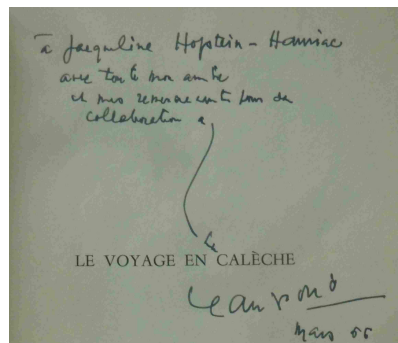 à Jacqueline Hopstein-Homniac
avec toute mon amitié
et mes remerciements pour sa
collaboration a
LE VOYAGE EN CALÈCHE
Jean Giono
Mars 66